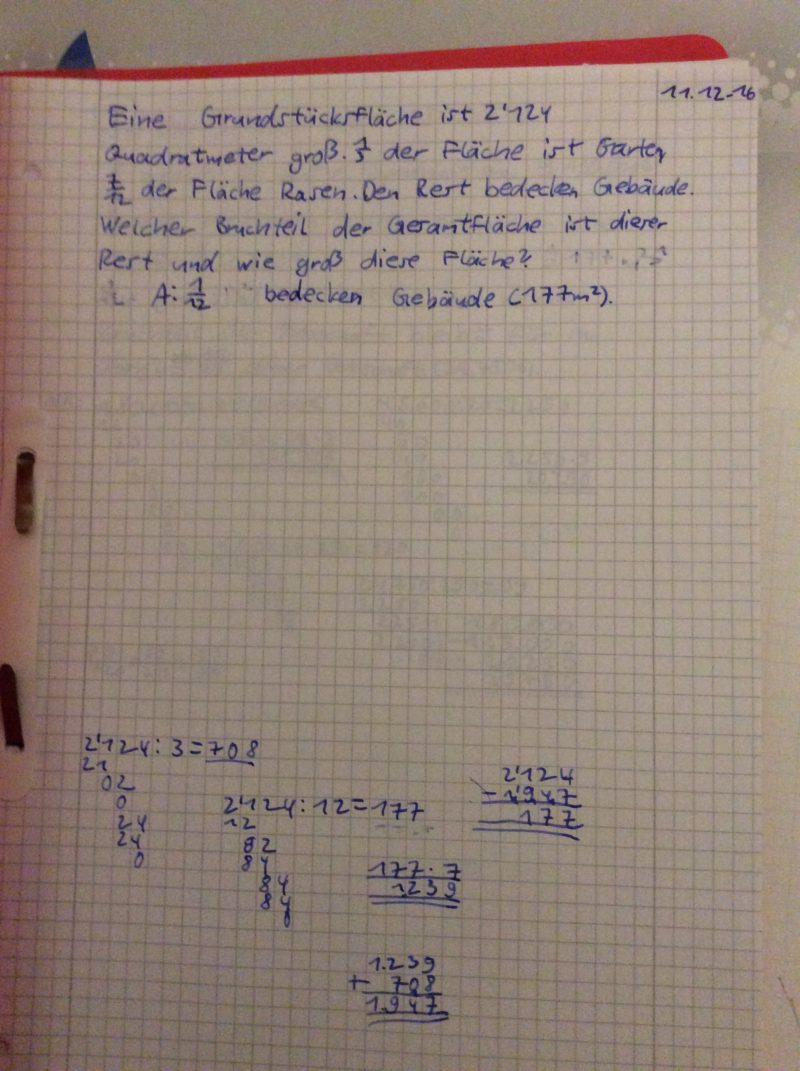 11.12-16
Eine Grundstücksfläche ist 2'124
Quadratmeter groß. 1/3 der Fläche ist Garten
7/12 der Fläche Rasen. Den Rest bedecken Gebäude.
Welcher Bruchteil der Gesamtfläche ist dieser
Rest und wie groß diese Fläche?
A: 1/12 bedecken Gebäude (177m²).
2'124 : 3 = 708
21
02
0
24
24
0
2'124 : 12 = 177
12
92
84
84
84
0
177 · 7
1239
1.239
+ 708
1.947
2'124
- 1'947
177